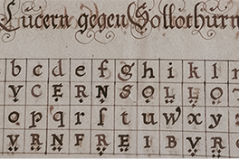 Lucern gegen Sollothurn
b c d e f g h i k l
V C E R N S O L L O
o p q r s t u w x y
V R N F R E I B V R